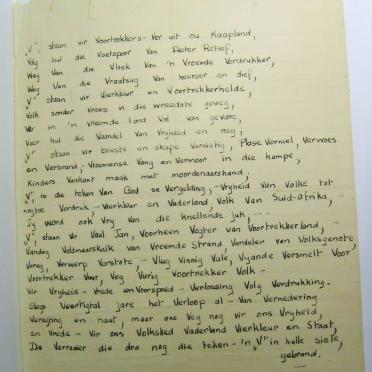 "V", staan vir Voortrekkers - Ver uit ou Kaapland,
Volg hul die Voetspoor Van Pieter Retief,
Weg Van die Vloek Van 'n Vreemde Verdrukker,
Weg Van die Vraatsug Van heerser en dief,
"V" staan vir Vierkleur en Voortrekkerhelde,
Volk sonder Vrees in die wreedste geveg,
Ver in 'n vreemde land Vol van gevare,
Voer hul die Vaandel van Vryheid en reg;
"V" staan vir beeste en skape Vernietig, Plase Verniel, Verwoes
en Verbrand, - Vroumense Vang en Vermoor in die kampe,
Kinders Vankant maak met moordenaarshand;
"V" is die teken Van God se Vergelding, - Vryheid van Volke tot
nogtoe Verdruk, - Vierkleur en Vaderland Volk Van Suid-Afrika, -
Jy word ook Vry van die knellende juk, - -
"V", staan vir Vaal Jan, Voorheen Vegter van Voortrekkerland, -
Vandag Veldmaarskalk van Vreemde Strand, Verdeler van Volksgenote,
Verwerp - Vlug Vinnig Vale, Vyande Versmelt Voor
Voortrekker Vuur, Veg Vurig Voortrekker Volk -
Vir Vryheid - Vrede en Voorspoed - Verlossing Volg Verdrukking.
Slegs Veertigtal jare het Verloop al - Van Vernedering
Veragting en haat, maar ons Veg nog vir ons Vryheid,
en Vrede - Vir ons Volkslied Vaderland Vierkleur en Staat,
Die Verraaier die dra nog die teken - 'n "V" in hulle siele,
gebrand.